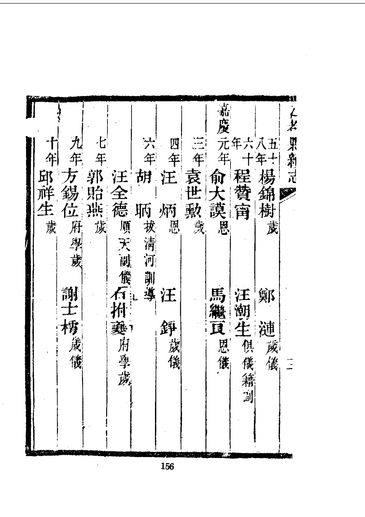 縣續志
五十八年 楊錦樹歲 鄭漣歲儀
六十年 程贊甯 汪潮生俱儀籍副
嘉慶元年 俞大謨恩 馬繼 恩儀
三年 袁世勲歲
四年 汪炳恩 汪錚歲儀
六年 胡昞拔清河訓導
汪全德順天副儀 石 府學歲
七年 郭貽燕歲
九年 方錫位府學歲 謝士 歲儀
十年 邱祥生歲
156